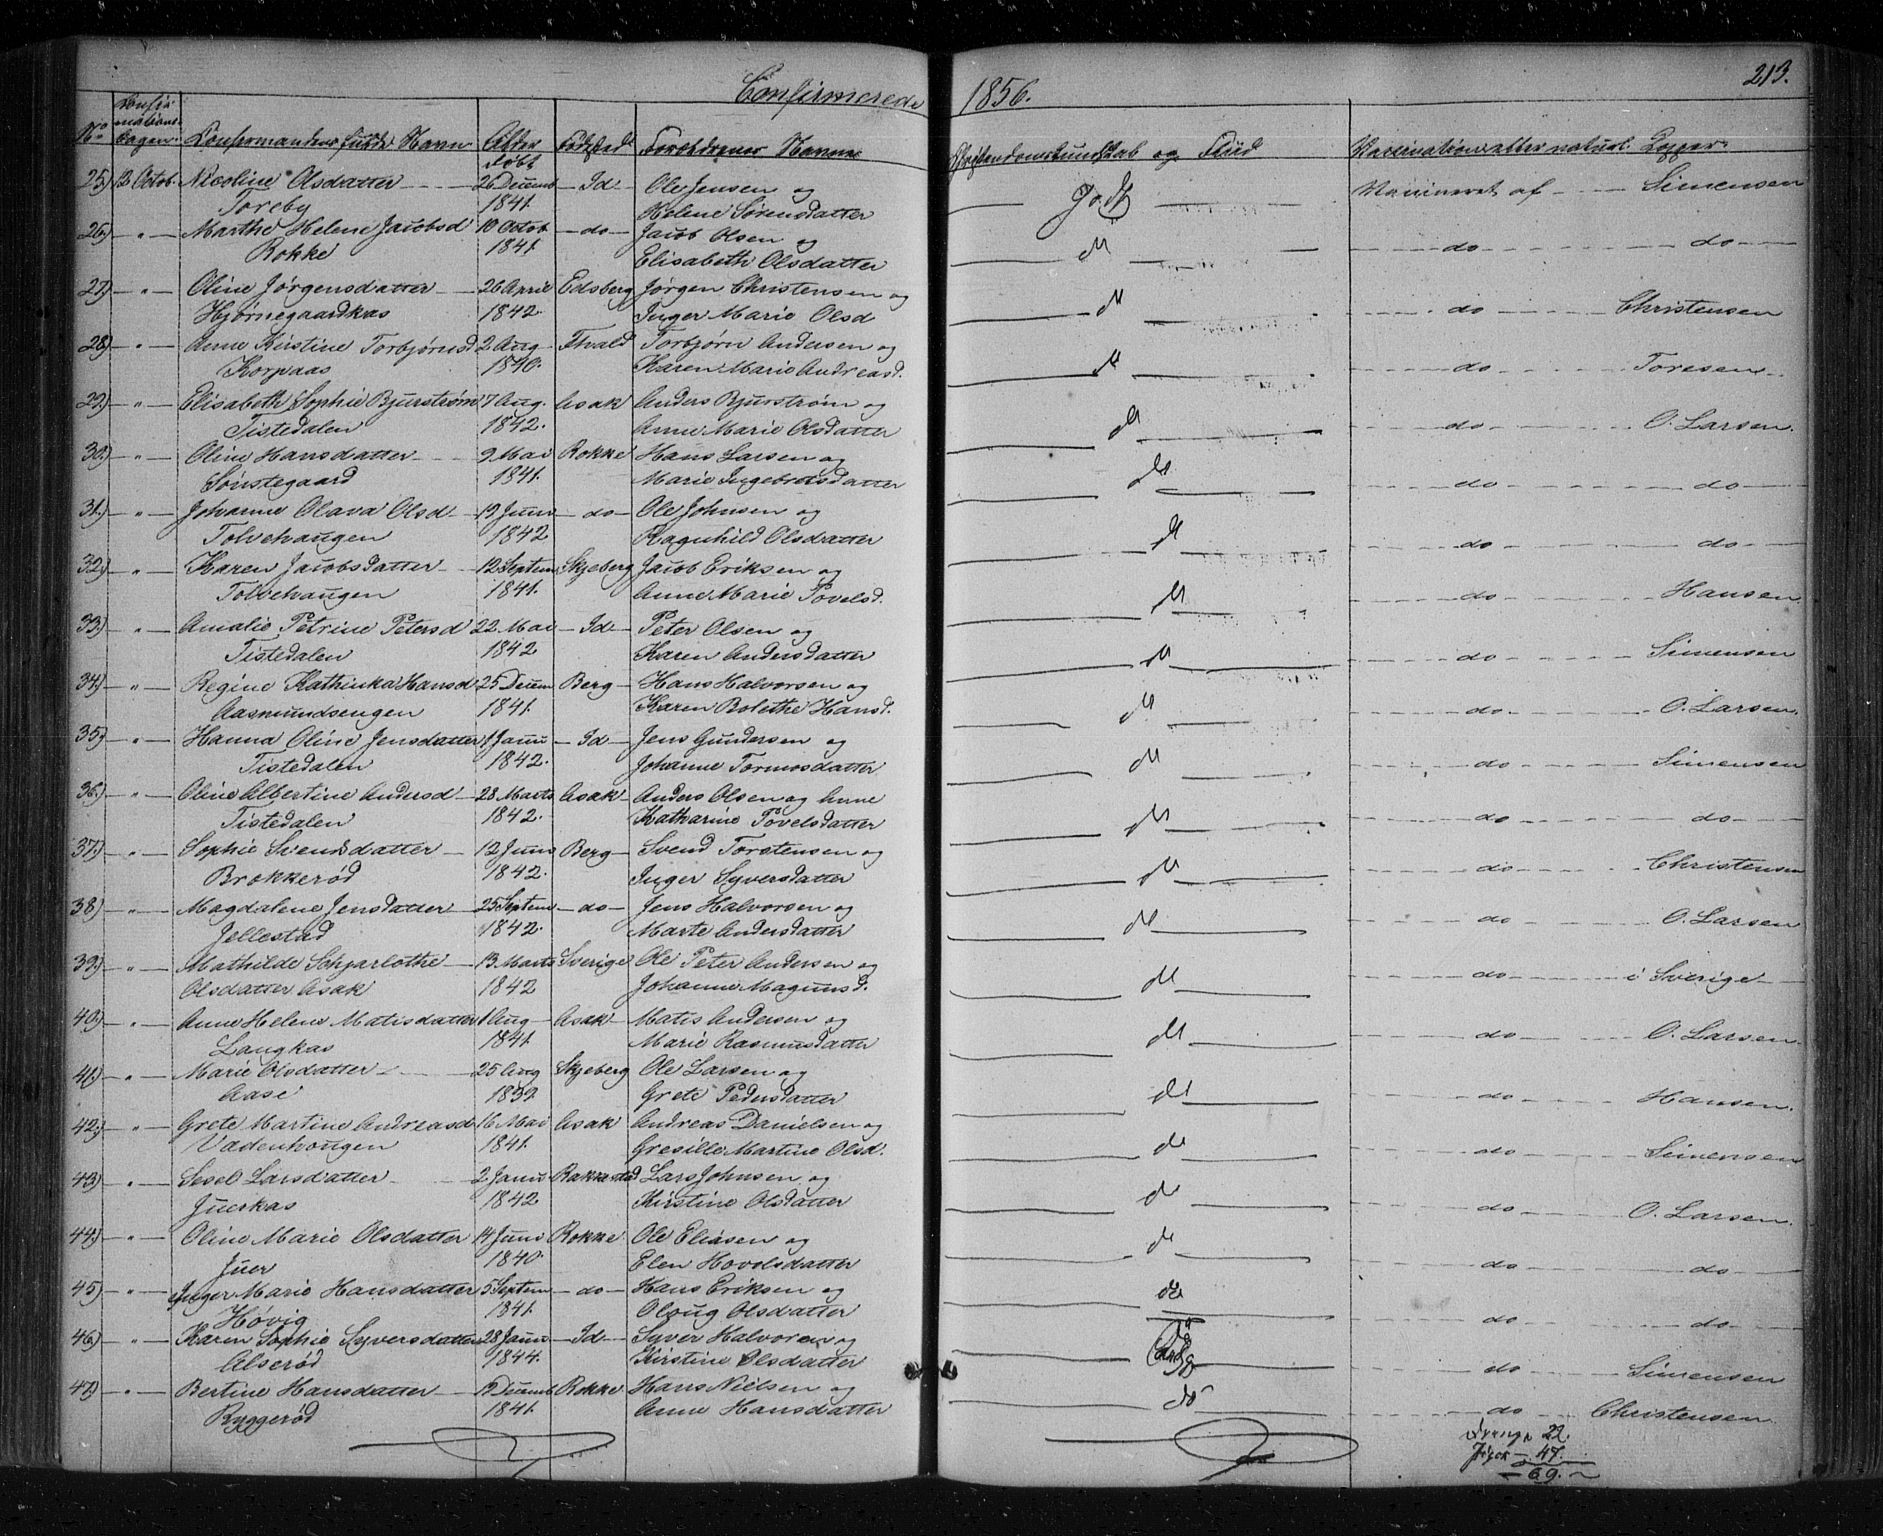 Confirmerede 1856. 213.
No Confirmationsdagen Confirmandens fulde Navn Alder Født Fødested Forældrenes Navne Christendomskundskab og Flid Vaccination eller naturl. Kopper
25) 12 Octob Nicoline Olsdatter 26 Decemb Id Ole Jensen og Godt Vaccineret af Simensen
Toreby 1841. Helene Sørensdatter
26) " Marthe Helene Jacobsd 10 Octob do Jacob Olsen og do do do
Rokke 1841. Elisabeth Olsdatter
27) " Oline Jørgensdatter 26 April Edsberg Jørgen Christensen og do do Christensen
Hjørnegaardkas 1842. Inger Marie Olsd
28) " Anne Kirstine Torbjørnsd 2 Aug Thorbjørn Andersen og do do Toresen
Korpaas 1840. Karen Marie Andreasd.
29) " Elisabeth Sophie Bjurstrøm 7 Aug. Asak Anders Bjurstrøm og do do O. Larsen.
Tistedalen 1842. Anne Marie Olsdatter
30) " Oline Hansdatter 9 Mai Rokke Hans Larsen og do do do
Sønstegaard 1841. Marie Ingebretsdatter
31) " Johanne Olava Olsd 19 Juni do Ole Johnsen og do do do
Tolvehaugen 1842 Ragnhild Olsdatter
32) " Karen Jacobsdatter 12 Septem Skjeberg Jacob Eriksen og do do Hansen
Tolvehaugen 1841. Anne Marie Povelsd.
33) " Amalie Petrine Petersd 22 Mai Id Peter Olsen og do do Simensen
Tistedalen 1842 Karen Andersdatter
34) " Regine Kathinka Hansd 25 Decem Berg Hans Halvorsen og do do O. Larsen.
Aasmundsengen 1841. Karen Bolethe Hansd.
35) " Hanna Oline Jensdatter 1 Janu Id Jens Gundersen og do do Simensen
Tistedalen 1842. Johanne Tormosdatter
36) " Oline Albertine Andersd 28 Marts Asak Anders Olsen og Anne do do do
Tistedalen 1842. Katharine Povelsdatter
37) " Sophie Svendsdatter 12 Juni Berg Svend Torstensen og do do Christensen
Brokkerød 1842. Inger Syversdatter
38) " Magdalene Jensdatter 25 Septem do Jens Halvorsen og do do O. Larsen
Jellestad 1842. Marte Andersdatter
39) " Mathilde 13 Marts Sverige Ole Peter Andersen og do do i Sverige
Olsdatter Asak 1842 Johanne Magnusd.
40) " Anne Helene Matisdatter 1 Aug Asak Matis Andersen og do do O. Larsen
Langkas 1841. Marie Rasmusdatter
41) " Marie Olsdatter 25 Aug Skjeberg Ole Larsen og do do Hansen.
Aase 1839 Grete Pedersdatter
42) " Grete Martine Andreasd 16 Mai Asak Andreas Danielsen og do do Simensen
Vadenhougen 1841. Gresille Martine Olsd.
43) " Sesel Larsdatter 2 Janu Rakkestad Lars Johnsen og do do O. Larsen.
Juerkas 1842 Kirstine Olsdatter
44) " Oline Marie Olsdatter 14 Juni Rokke Ole Eliasen og do do do
Juer 1840. Elen Hovelsdatter
45) " Inger Marie Hansdatter 5 Septem do Hans Eriksen og do do do
Høvig 1841. Oloug Olsdatter
46) " Karen Sophie Syversdatter 28 Janu Id Syver Halvoren og do Simensen
Alserød 1844. Kirstine Olsdatter
47) " Bertine Hansdatter 19 Decemb Rokke Hans Nielsen og do do Christensen
Ryggerød 1841. Anne Hansdatter
Drenge 22.
Piger 47.
69.